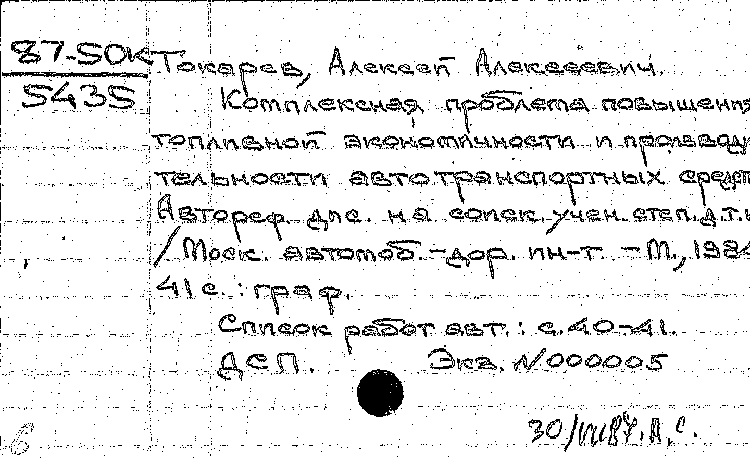 87-SOK
5435
Токарев, Алексей Алексеевич.
Комплексная проблема повышения
топливной экономичности и производи
тельности автотранспортных средст
Автореф. дис. на соиск. учен. степ. д.т.н
/Моск. автомоб.-дор. ин-т. - М., 198
41 с. : граф.
Список работ авт. : с. 40-41.
ДСП. Экз. N000005
30/VII87. А. С.
6